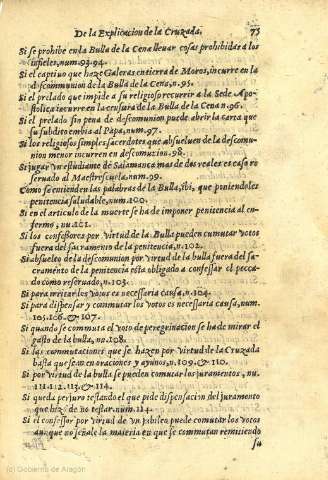 De la Explicacion de la Cruzada. 73
Si se prohibe en la Bulla de la Cena lleuar cosas prohibidas a los
infieles, num. 93. 94.
Si el captiuo que haze Galeras en tierra de Moros, incurre en la
descommunion de la Bulla de la Cena, n. 95.
Si el prelado que impide a su religioso recurrir a la Sede Apo-
stolica incurre en la censura de la Bulla de la Cena n. 96.
Si el prelado sin pena de descomunion puede abrir la carta que
su subdito embia al Papa, num. 97.
Si los religiosos simples sacerdotes que absueluen de la descomu-
nion menor incurren en descomunion. 98.
Si jugar vn estudiante de Salamanca mas de dos reales es caso re
seruado al Maestrescuela, num. 99.
Como se entienden las palabras de la Bulla, ibi, que poniendoles
penitencia saludable, num. 100.
Si en el articulo de la muerte se ha de imponer penitencia al en-
fermo, nu. 101.
Si los confessores por virtud de la Bulla pueden cumutar votos
fuera del sacramento de la penitencia, n. 102.
Si absuelto de la descomunion por virtud de la bulla fuera del sa-
cramento de la penitencia esta obligado a confessar el pecca-
do como reseruado, n. 103.
Si para irritar los votos es necessaria causa, n. 104.
Si para dispensar y commutar los votos es necessaria causa, num.
105. 106. & 107.
Si quando se commuta el voto de peregrinacion se ha de mirar el
gasto de la bulla, nu. 108.
Si las commutaciones que se hazen por virtud de la Cruzada
basta que sean en oraciones y ayunos, n. 109. & 110.
Si por virtud de la bulla se pueden comutar los juramentos, nu.
111. 112. 113. & 114.
Si queda perjuro testando el que pide dispensacion del juramento
que hizo de no testar, num. 114.
Si el confessor por virtud de vn jubileo puede comutar los votos
aunque no señale la materia en que se commutan remitiendo
su
(c) Gobierno de Aragón